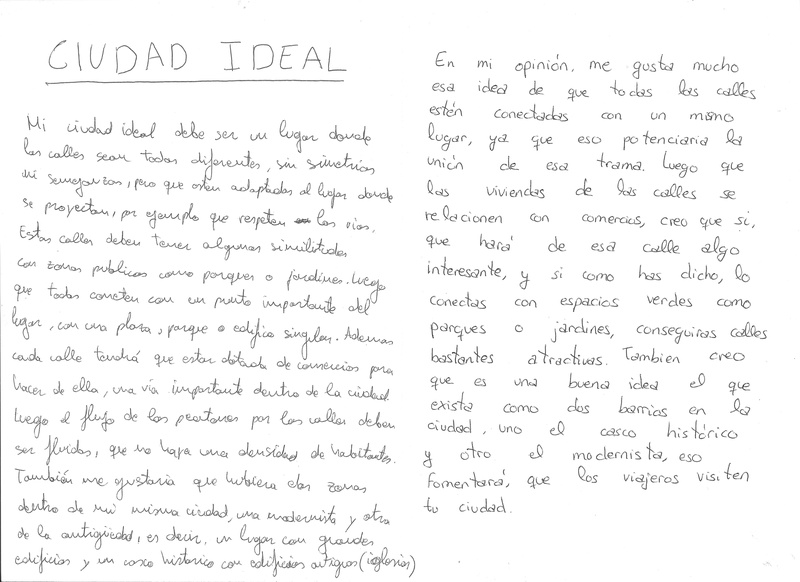 CIUDAD IDEAL
Mi ciudad ideal debe ser un lugar donde
las calles sean todas diferentes, sin simetrías
ni semejanzas, pero que estén adaptadas al lugar donde
se proyectan, por ejemplo que respeten los ríos.
Estas calles deben tener algunas similitudes
con zonas publicas como parques o jardines. Luego
que todas conecten con un punto importante del
lugar, con una plaza, parque o edificio singular. Ademas
cada calle tendrá que estar dotada de comercios para
hacer de ella, una vía importante dentro de la ciudad.
Luego el flujo de los peatones por las calles deben
ser fluidos, que no haya una densidad de habitantes.
También me gustaria que hubiera dos zonas
dentro de mi misma ciudad, una modernista y otra
de la antigüedad, es decir, un lugar con grandes
edificios y un casco historico con edificios antiguos (iglesias)
En mi opinión, me gusta mucho
esa idea de que todas las calles
estén conectadas con un mismo
lugar, ya que eso potenciaria la
unión de esa trama. Luego que
las viviendas de las calles se
relacionen con comercios, creo que si,
que hará de esa calle algo
interesante, y si como has dicho, lo
conectas con espacios verdes como
parques o jardines, conseguiras calles
bastantes atractivas. Tambien creo
que es una buena idea el que
exista como dos barrios en la
ciudad, uno el casco histórico
y otro el modernista, eso
fomentará, que los viajeros visiten
tu ciudad.